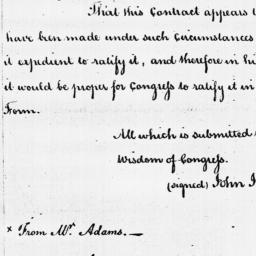 That this Contract appears t
have been made under such Circumstances
it expedient to ratify it, and therefore in hi
it would be proper for Congress to ratify it in
Form.
All which is submitted
Wisdom of Congress.
(signed) John J
× From Mr. Adams. —